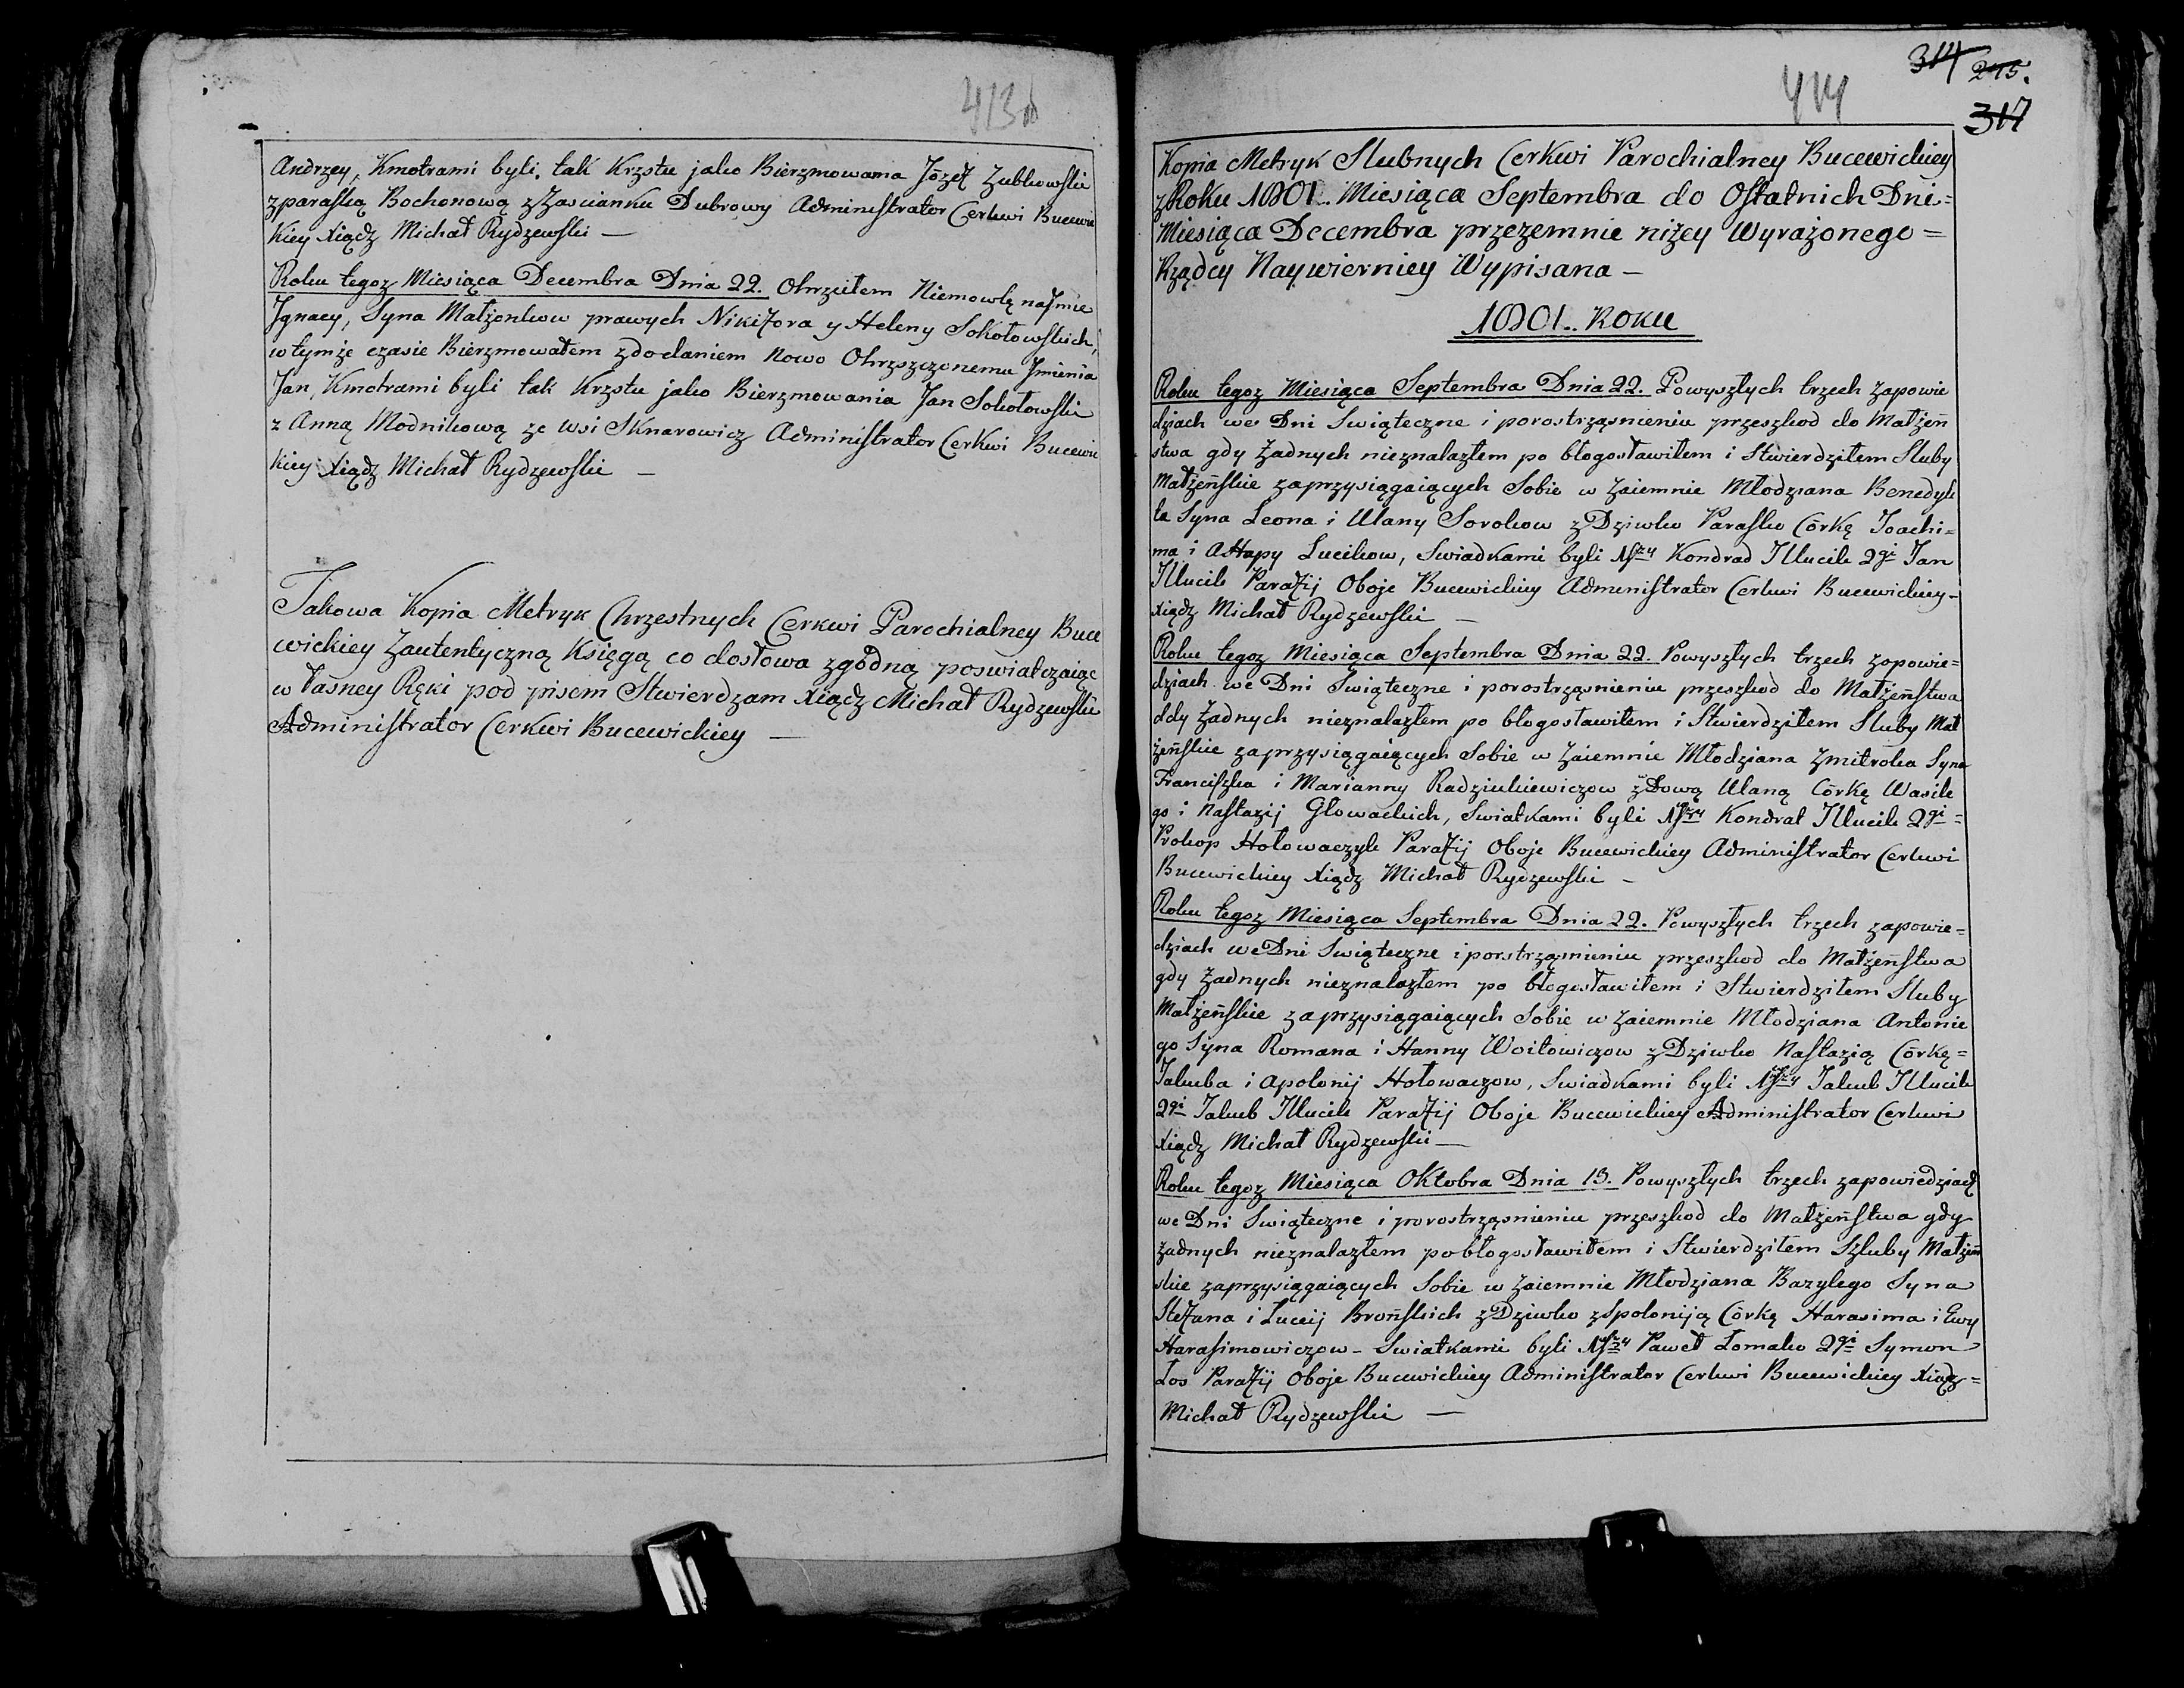 413
Andrzey, Kmotrami byli, tak Krzstu jako Bierzmowania Józef Zubkowski
zparaską Bochonową z Zascianku Dubrowy Administrator Cerkwi Bucewic
Kiey Xiądz Michał Rydzewski —
Roku tegoz Miesiąca Decembra Dnia 22. Ohrzciłem Niemowlę na Jmie
Jgnacy, Syna Małzonkow prawych Nikifora y Heleny Sokołowskich,
wtymże czasie Bierzmowałem zdodaniem Nowo Ohrzszczonemu Jmienia
Jan, Kmotrami byli tak Krzstu jako Bierzmowania Jan Sokołowski
z Anną Modnikową ze wsi Sknarowicz Administrator Cerkwi Bucewic
kiey Xiądz Michał Rydzewski —
Takowa Kopia Metryk Chrzestnych Cerkwi Parochialney Buce
wickiey Zautentyczną Księgą co dosłowa zgodną poswiatczaiąc
własney Ręki pod pisem Stwierdzam Xiądz Michał Rydzewski
Administrator Cerkwi Bucewickiey —
414 314 275.
317
Kopia Metryk Slubnych Cerkwi Parochialney Bucewickiey
z Roku 1801.. Miesiąca Septembra do Ostatnich Dni=
Miesiąca Decembra przezemnie niżey Wyrażonego=
Rządcy Naywierniey Wypisana —
1801.. Roku
Roku tegoz Miesiąca Septembra Dnia 22. Powyszłych trzech Zapowie
dziach we Dni Swiąteczne i porostrząsnieniu przeszkod do Małżeń
stwa gdy Żadnych nieznalazłem po błogosławiłem i Stwierdziłem Sluby
Małżeńskie zaprzysiągaiących Sobie w Zaiemnie Młodziana Benedyk
ta Syna Leona i Ulany Sorokow z Dziwko Parasko Córkę Joachi=
ma i Ahapy Lucikow, Swiadkami byli 1szy Kondrad Jllucik 2gi Jan
Jllucik Parafij Oboje Bucewickiey Administrator Cerkwi Bucewickiey-
Xiądz Michał Rydzewski —
Roku tegoz Miesiąca Septembra Dnia 22. Powyszłych trzech zopowie=
dziach we Dni Swiąteczne i porostrząsnieniu przeszkod do Małżeństwa
ddy Żadnych nieznalazłem po błogosławiłem i Stwierdziłem Sluby Mał
żeńskie zaprzysiągaiących Sobie w Zaiemnie Młodziana Zmitroka Syna
Franciszka i Marianny Radziukiewiczow z Dową Ulaną Córkę Wasile
go i Nastazij Głowackich, Swiatkami byli 1szy Kondrat Jllucik 2gi=
Prokop Hołowaczyk Parafij Oboje Bucewickiey Administrator Cerkwi
Bucewickiey Xiądz Michał Rydzewski —
Roku tegoz Miesiąca Septembra Dnia 22. Powyszłych trzech zapowie=
dziach we Dni Swiąteczne i porstrząsnieniu przeszkod do Małżeństwa
gdy Żadnych nieznalazłem po błogosławiłem i Stwierdziłem Sluby
Małżeńskie zaprzysiągaiących Sobie w Zaiemnie Młodziana Antonie
go Syna Romana i Hanny Woitowiczow z Dziwko Nastazią Córkę=
Jakuba i Apolonij Hołowaczow, Swiadkami byli 1szy Jakub Jllucik
2gi Jakub Jllucik Parafij Oboje Bucewickiey Administrator Cerkwi
Xiądz Michał Rydzewski —
Roku tegoz Miesiąca Oktobra Dnia 13. Powyszłych trzech zapowiedziach
we Dni Swiąteczne i porostrząsnieniu przeszkod do Małżeństwa gdy
żadnych nieznalazłem pobłogosławiłem i Stwierdziłem Szluby Małżeń
skie zaprzysiągaiących Sobie w Zaiemnie Młodziana Bazylego Syna
Stefana i Lucij Brońskich z Dziwko zSpoloniją Córkę Harasima i Ewy
Harasimowiczow - Swiatkami byli 1szy Paweł Łomako 2gi Symon
Łos Parafij Oboje Bucewickiey Administrator Cerkwi Bucewickiey Xiądz=
Michał Rydzewski —